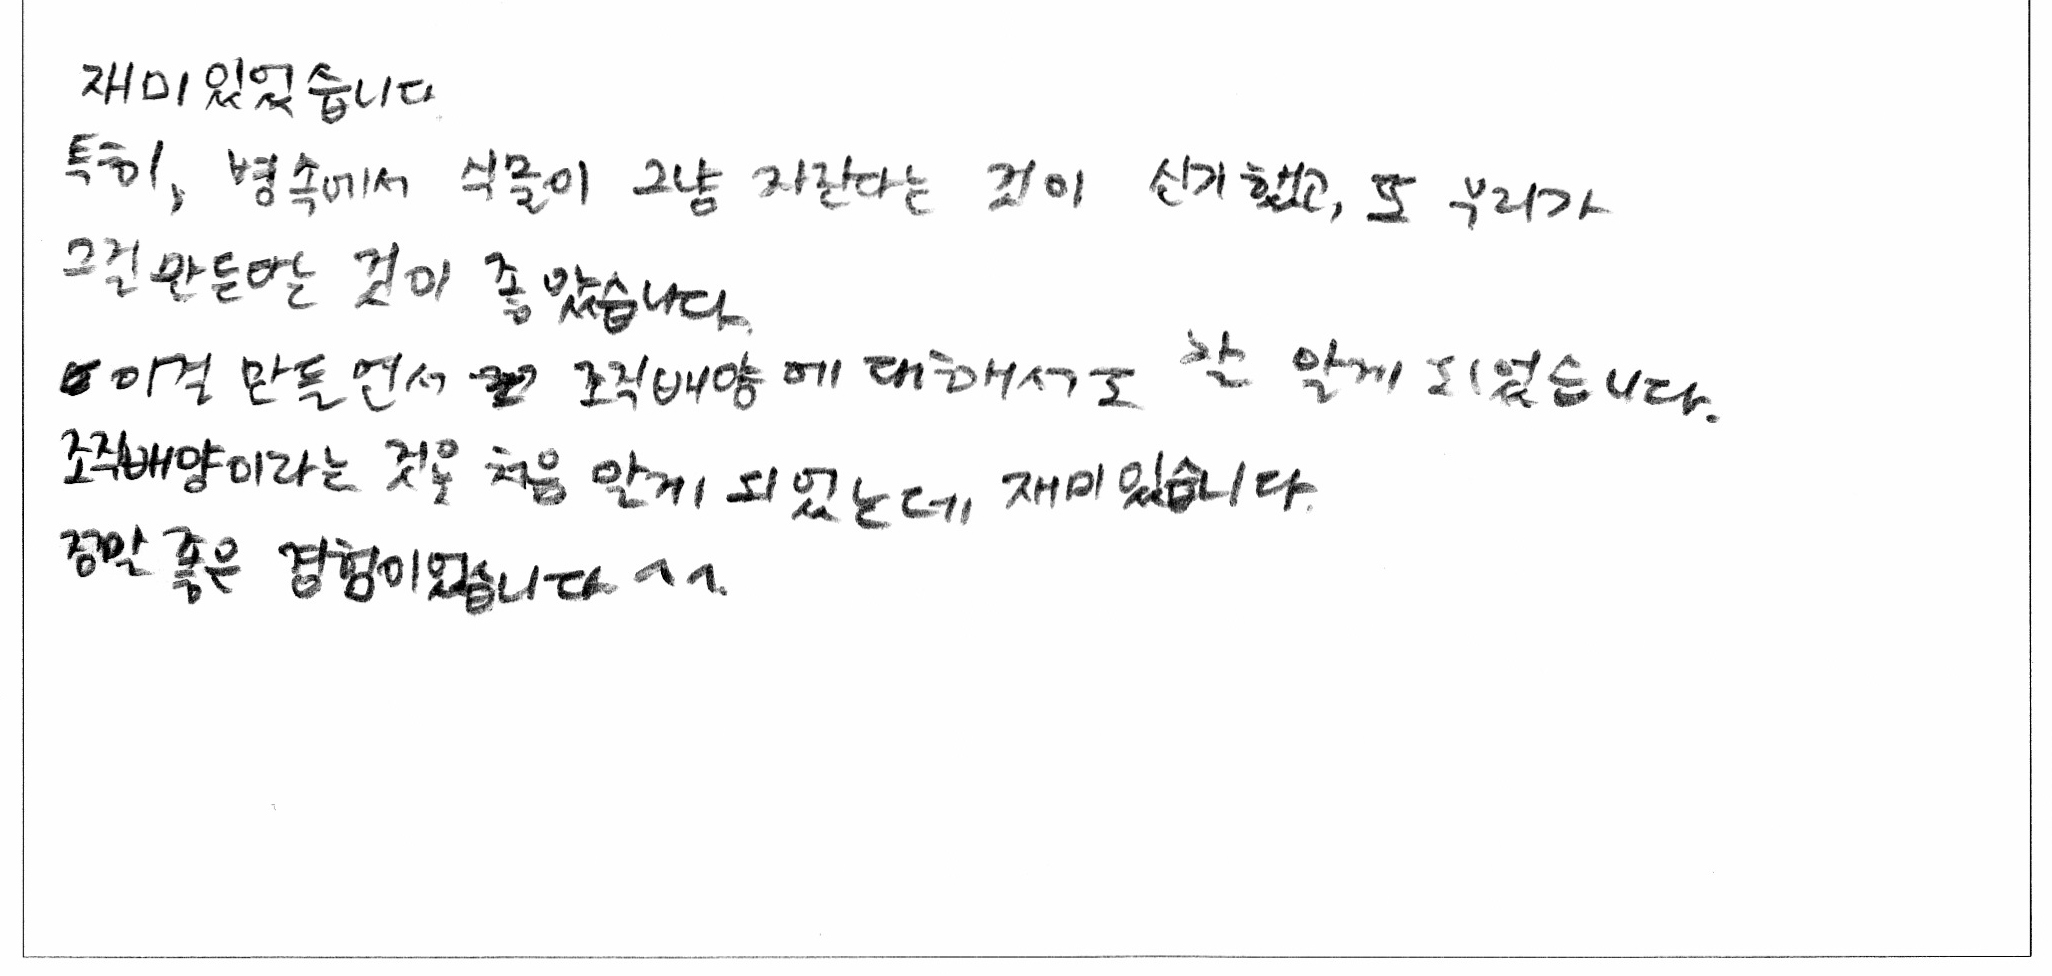 재미있었습니다
특히, 병속에서 식물이 그냥 자란다는 것이 신기했고, 또 우리가
그걸 만든다는 것이 좋았습니다.
이걸 만들면서 조직배양에 대해서도 잘 알게 되었습니다.
조직배양이라는 것을 처음 알게 되었는데, 재미있습니다.
정말 좋은 경험이었습니다 ^^.